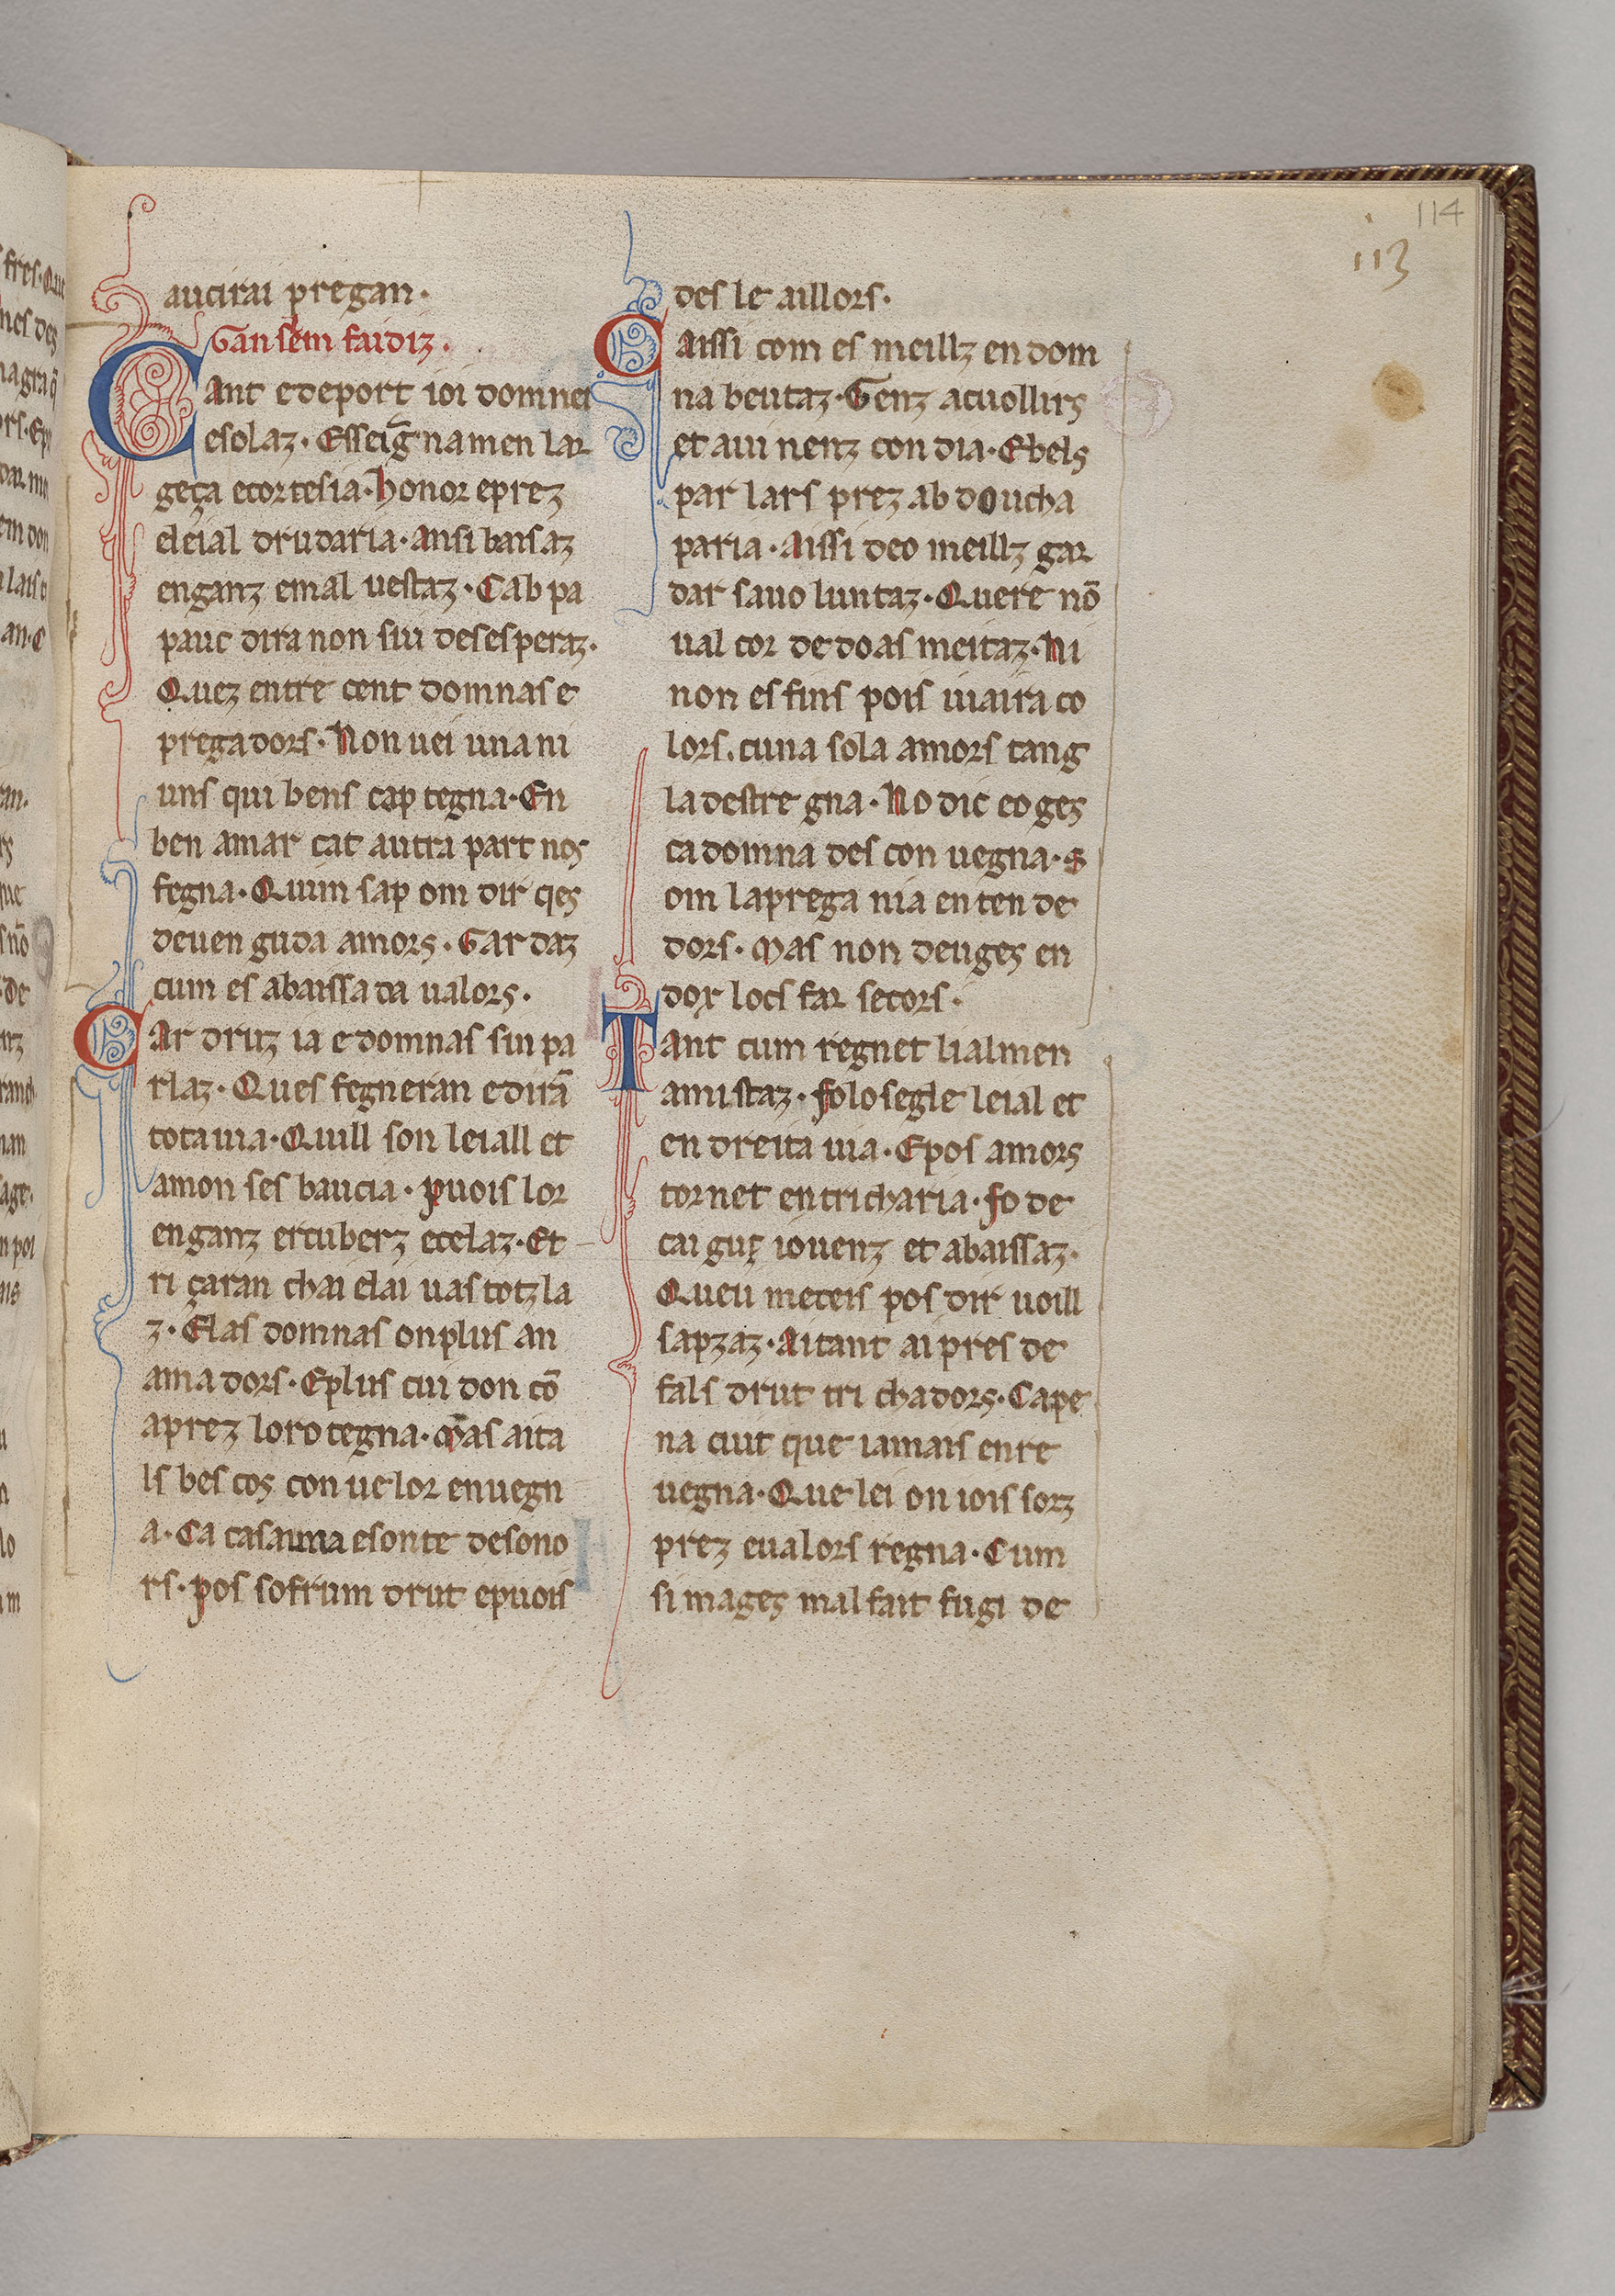 114
113
aucirai pregan·
Gansem faidiz·
Cant edeport ioi domnei
esolaz· Esseig̃namen lar
geça ecortesia· honor eprez
eleial drudaria· Ansi baisaz
enganz emal uestaz· Cab pa
pauc dira non sui desesperaz·
Quez entre cent domnas e
pregadors· Non uei una ni
uns qui bens captegna· En
ben amar cat autra part nos
fegna· Quim sap om dir qes
deuen guda amors· Gardaz
cum es abaissada ualors·
Car druz ia e domnas sin pa
rlaz· Ques fegneran e dirã
tota uia· Quill son leiall et
amon ses baucia· puois lor
enganz ertuberz ecelaz· Et
ri çaran chai elai uas totz la
z· Elas domnas on plus an
amadors· Eplus cui don cõ
aprez loro tegna· Mas aita
ls bes cos conuelor enuegn
a· Ca casauna esonte desono
rs· pos sofrum drut epuois
des le aillors·
Caissi com es meillz en dom
na beutaz· Genz acuollirs
et aui nenz con dia· Ebels
par lars prez ab doucha
paria· Aissi deo meillz gar
dar sauo luntaz· Quere nõ
ual cor de doas meitaz· Ni
non es fins pois uiaira co
lors. cuna sola amors tang
la destre gna· No dic eo ges
ca domna des con uegna· S
om la prega nia en ten de
dors· Mas non deuges en
dox locs far secors·
Tant cum regnet lialmen
amistaz· folo segle leial et
en dreita uia· Epos amors
tornet en tricharia· fo de
cai guz iouenz et abaissaz·
Queu meteis pos dir uoill
sapzaz· Aitant ai pres de
fals drut tri chadors· Cape
na ciut que iamais enre
uegna· Que lei on iois sorz
prez eualors regna· Cum
si mages mal fait fugi de